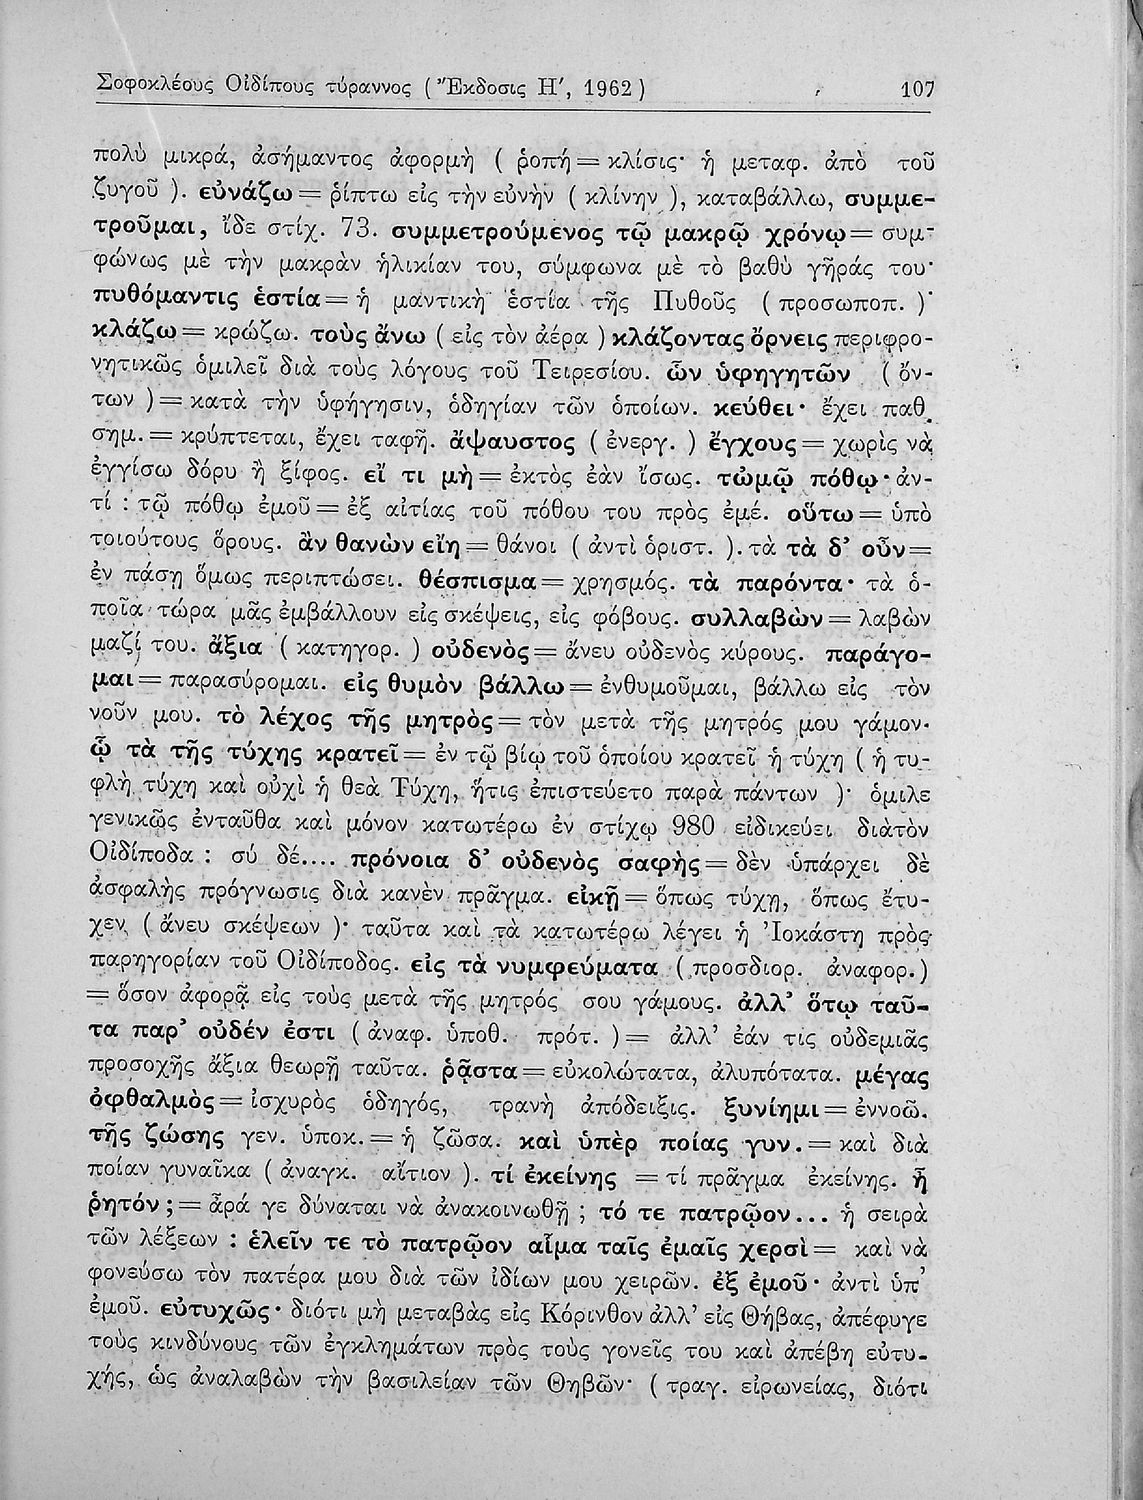 Σοφοκλέους Οἰδίπους τύραννος ( Ἔκδοσις Η′, 1962 ) 107
πολὺ μικρά, ἀσήμαντος ἀφορμὴ ( ῥοπή = κλίσις· ἡ μεταφ. ἀπὸ τοῦ
ζυγοῦ ). εὐνάζω = ῥίπτω εἰς τὴν εὐνὴν ( κλίνην ), καταβάλλω, συμμε-
τροῦμαι, ἴδε στίχ. 73. συμμετρούμενος τῷ μακρῷ χρόνῳ = συμ-
φώνως μὲ τὴν μακρὰν ἡλικίαν του, σύμφωνα μὲ τὸ βαθὺ γῆράς του·
πυθόμαντις ἑστία = ἡ μαντικὴ ἑστία τῆς Πυθοῦς ( προσωποπ. )·
κλάζω = κρώζω. τοὺς ἄνω ( εἰς τὸν ἀέρα ) κλάζοντας ὄρνεις περιφρο-
νητικῶς ὁμιλεῖ διὰ τοὺς λόγους τοῦ Τειρεσίου. ὧν ὑφηγητῶν ( ὄν-
των ) = κατὰ τὴν ὑφήγησιν, ὁδηγίαν τῶν ὁποίων. κεύθει· ἔχει παθ.
σημ. = κρύπτεται, ἔχει ταφῆ. ἄψαυστος ( ἐνεργ. ) ἔγχους = χωρὶς νὰ
ἐγγίσω δόρυ ἢ ξίφος. εἴ τι μὴ = ἐκτὸς ἐὰν ἴσως. τὠμῷ πόθῳ· ἀν-
τί : τῷ πόθῳ ἐμοῦ = ἐξ αἰτίας τοῦ πόθου του πρὸς ἐμέ. οὕτω = ὑπὸ
τοιούτους ὅρους. ἂν θανὼν εἴη = θάνοι ( ἀντὶ ὁριστ. ). τὰ τὰ δ’ οὖν =
ἐν πάσῃ ὅμως περιπτώσει. θέσπισμα = χρησμός. τὰ παρόντα· τὰ ὁ-
ποῖα τώρα μᾶς ἐμβάλλουν εἰς σκέψεις, εἰς φόβους. συλλαβὼν = λαβὼν
μαζί του. ἄξια ( κατηγορ. ) οὐδενὸς = ἄνευ οὐδενὸς κύρους. παράγο-
μαι = παρασύρομαι. εἰς θυμὸν βάλλω = ἐνθυμοῦμαι, βάλλω εἰς τὸν
νοῦν μου. τὸ λέχος τῆς μητρὸς = τὸν μετὰ τῆς μητρός μου γάμον.
ᾧ τὰ τῆς τύχης κρατεῖ = ἐν τῷ βίῳ τοῦ ὁποίου κρατεῖ ἡ τύχη ( ἡ τυ-
φλὴ τύχη καὶ οὐχὶ ἡ θεὰ Τύχη, ἥτις ἐπιστεύετο παρὰ πάντων )· ὁμιλε
γενικῶς ἐνταῦθα καὶ μόνον κατωτέρω ἐν στίχῳ 980 εἰδικεύει διὰτὸν
Οἰδίποδα : σύ δέ.... πρόνοια δ’ οὐδενὸς σαφὴς = δὲν ὑπάρχει δὲ
ἀσφαλὴς πρόγνωσις διὰ κανὲν πρᾶγμα. εἰκῇ = ὅπως τύχῃ, ὅπως ἔτυ-
χεν ( ἄνευ σκέψεων )· ταῦτα καὶ τὰ κατωτέρω λέγει ἡ Ἰοκάστη πρὸς
παρηγορίαν τοῦ Οἰδίποδος. εἰς τὰ νυμφεύματα ( προσδιορ. ἀναφορ.)
= ὅσον ἀφορᾷ εἰς τοὺς μετὰ τῆς μητρός σου γάμους. ἀλλ’ ὅτῳ ταῦ-
τα παρ’ οὐδέν ἐστι ( ἀναφ. ὑποθ. πρότ. ) = ἀλλ’ ἐάν τις οὐδεμιᾶς
προσοχῆς ἄξια θεωρῇ ταῦτα. ῥᾷστα = εὐκολώτατα, ἀλυπότατα. μέγας
ὀφθαλμὸς = ἰσχυρὸς ὁδηγός, τρανὴ ἀπόδειξις. ξυνίημι = ἐννοῶ.
τῆς ζώσης γεν. ὑποκ. = ἡ ζῶσα. καὶ ὑπὲρ ποίας γυν. = καὶ διὰ
ποίαν γυναῖκα ( ἀναγκ. αἴτιον ). τί ἐκείνης = τί πρᾶγμα ἐκείνης. ἦ
ῥητόν ; = ἆρά γε δύναται νὰ ἀνακοινωθῇ ; τό τε πατρῷον... ἡ σειρὰ
τῶν λέξεων : ἑλεῖν τε τὸ πατρῷον αἷμα ταῖς ἐμαῖς χερσὶ = καὶ νὰ
φονεύσω τὸν πατέρα μου διὰ τῶν ἰδίων μου χειρῶν. ἐξ ἐμοῦ· ἀντὶ ὑπ’
ἐμοῦ. εὐτυχῶς· διότι μὴ μεταβὰς εἰς Κόρινθον ἀλλ’ εἰς Θήβας, ἀπέφυγε
τοὺς κινδύνους τῶν ἐγκλημάτων πρὸς τοὺς γονεῖς του καὶ ἀπέβη εὐτυ-
χής, ὡς ἀναλαβὼν τὴν βασιλείαν τῶν Θηβῶν· ( τραγ. εἰρωνείας, διότι